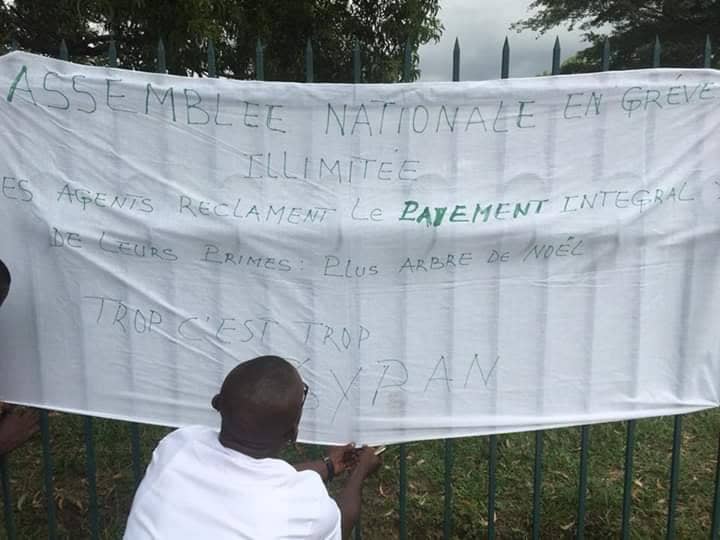 ASSEMBLEE NATIONALE EN GRÉVE
ILLIMITÉE
ES AGENTS RECLAMENT LE PAYEMENT INTEGRAL
DE LEURS PRIMES: PLUS ARBRE DE NOËL
TROP C'EST TROP